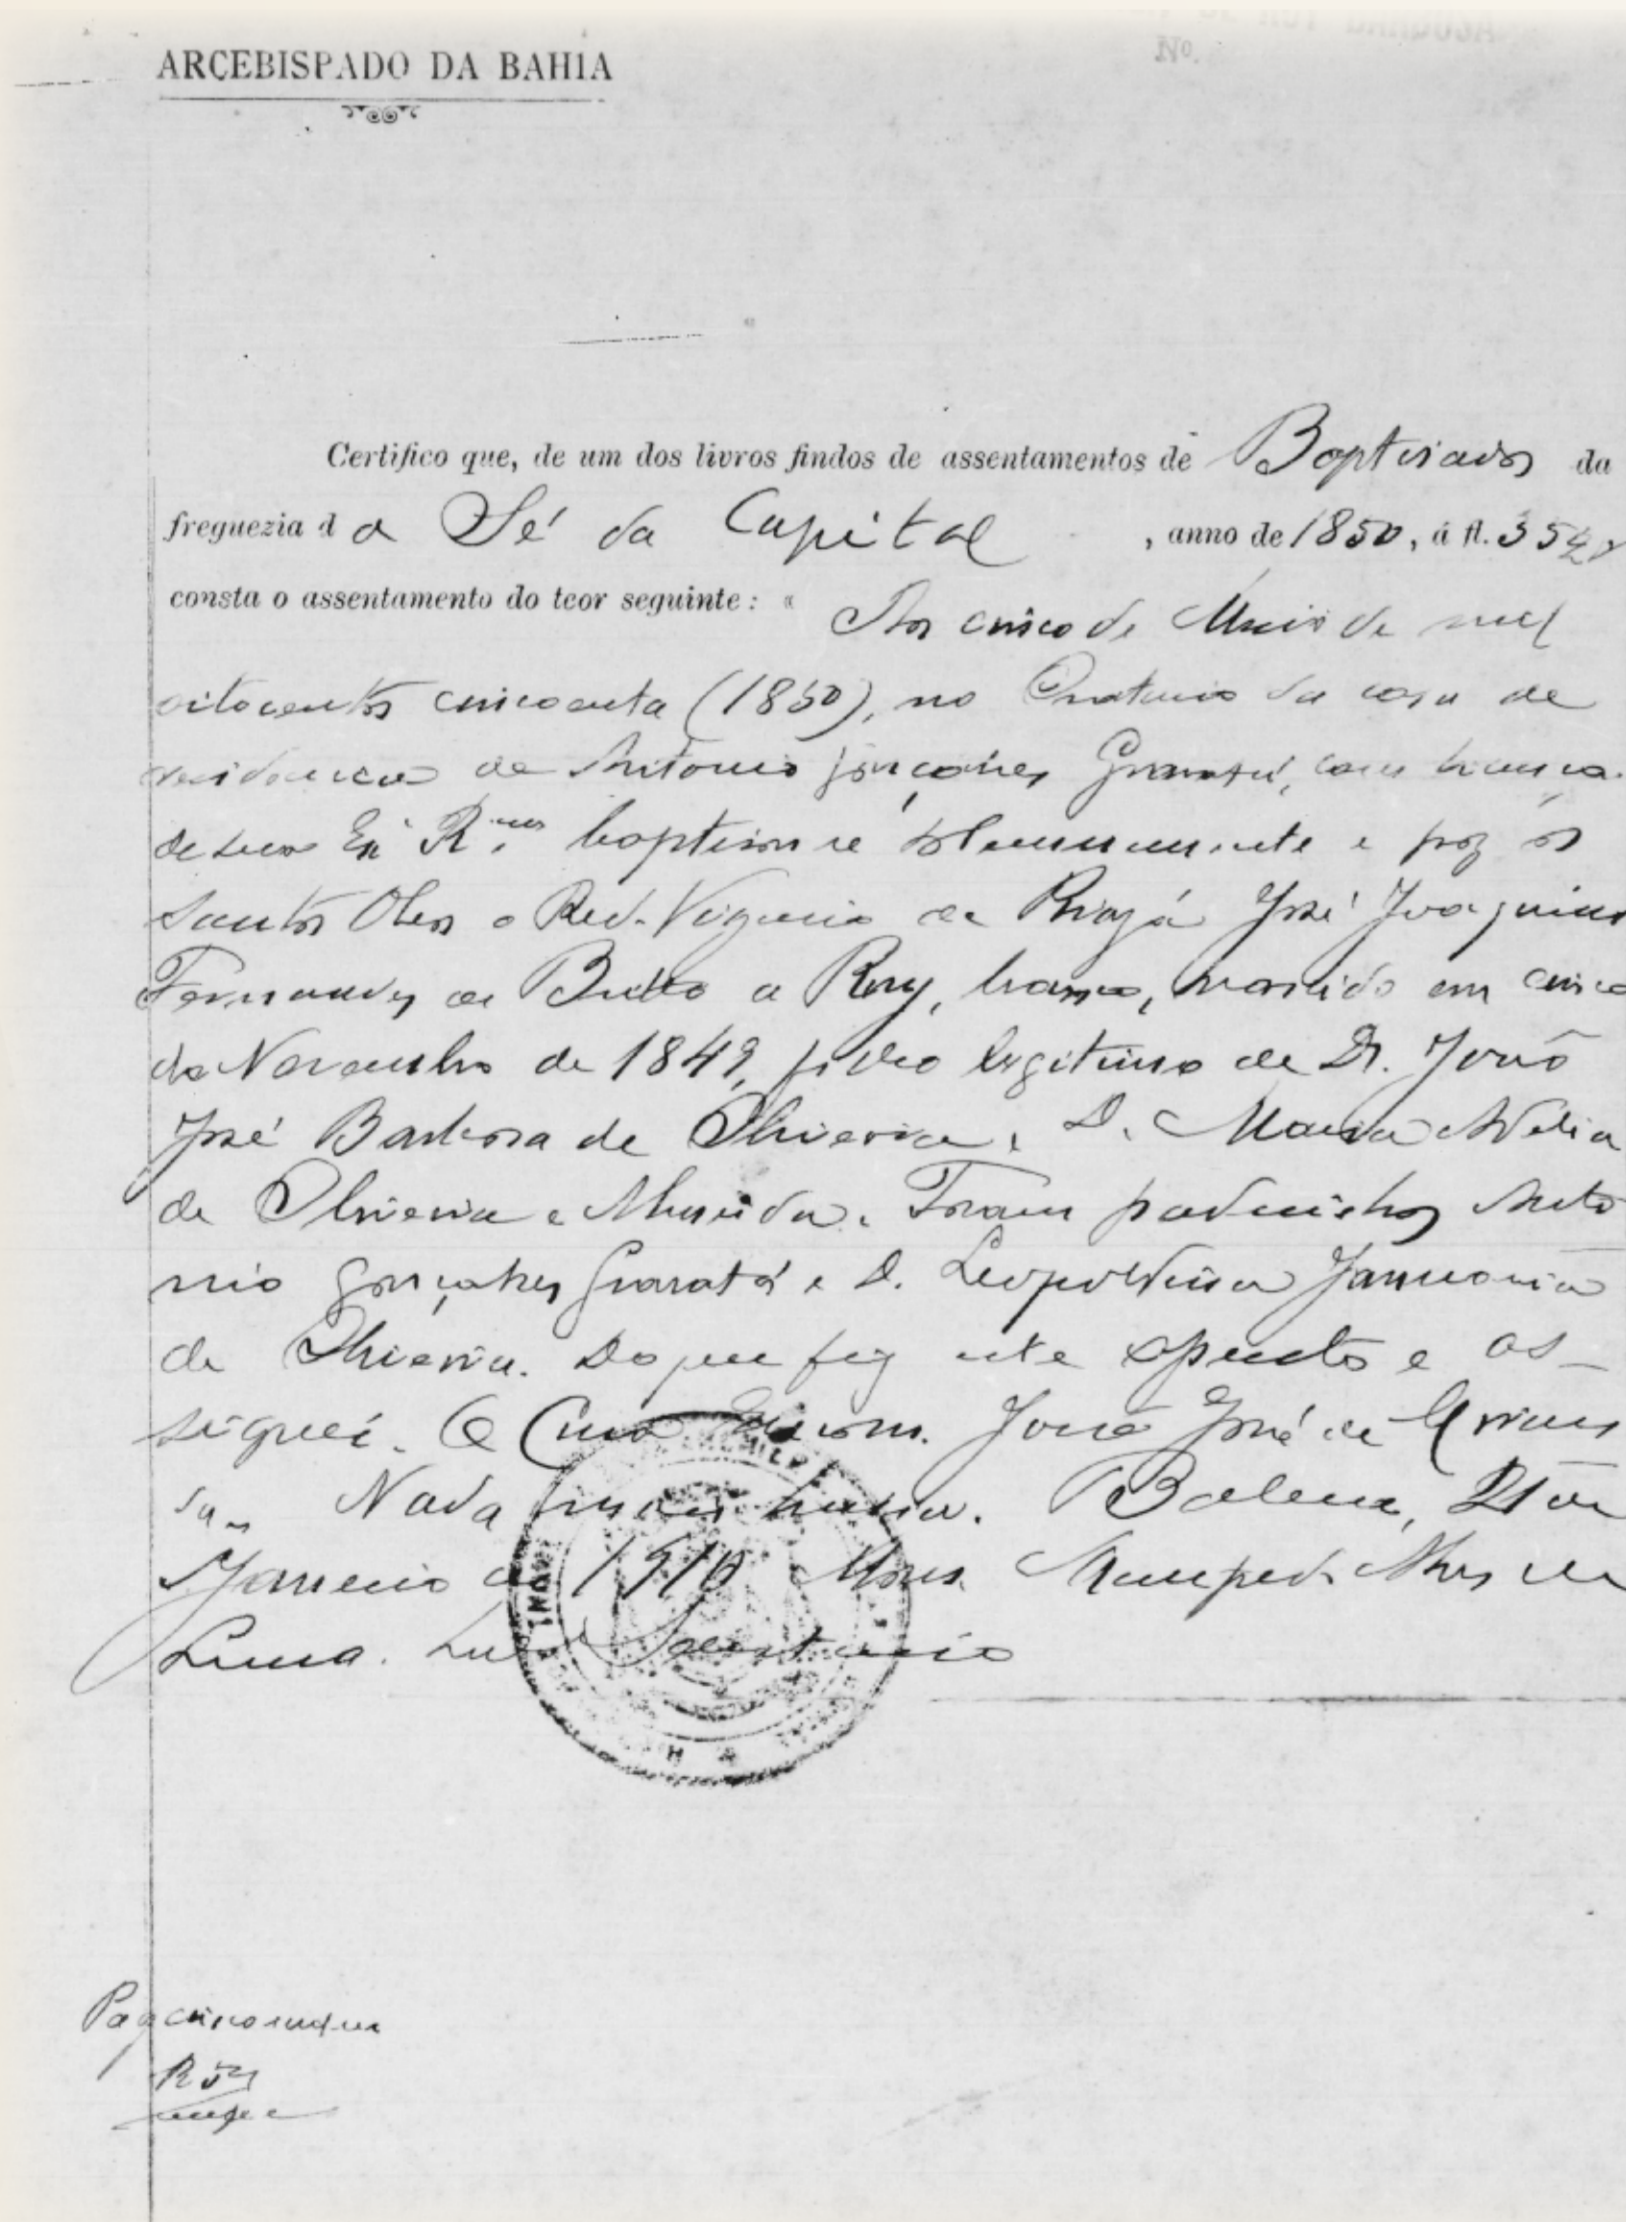 ARCEBISPADO DA BAHIA
Certifico que, de um dos livros findos de assentamentos de Baptisados da
freguezia da Sé da Capital, anno de 1850, á fl.
consta o assentamento do teor seguinte: « Aos cinco de Maio de mil
oitocentos cincoenta (1850), no Oratorio da casa de
residencia de Antonio Gonçalves Gravatá, com licença
de sua Exª Rma baptisou solemnemente e poz os
Santos Oleos o Red. Vigario de José Joaquim
Fernandes de Britto a Ruy, branco, nascido em cinco
de Novembro de 1849, filho legitimo de Dr. João
José Barbosa de Oliveira e D. Maria Adelia
de Oliveira e Almeida. Foram padrinhos Anto
nio Gonçalves Gravatá e D. Leopoldina Januaria
de Oliveira. Do que fiz este assento e as-
signei. O Cura João José de Miran
da„ Nada mais havia. Bahia, 21 de
Janeiro de 1910 Mons. Alves de
Lima. Secretario
Pag cinco mil